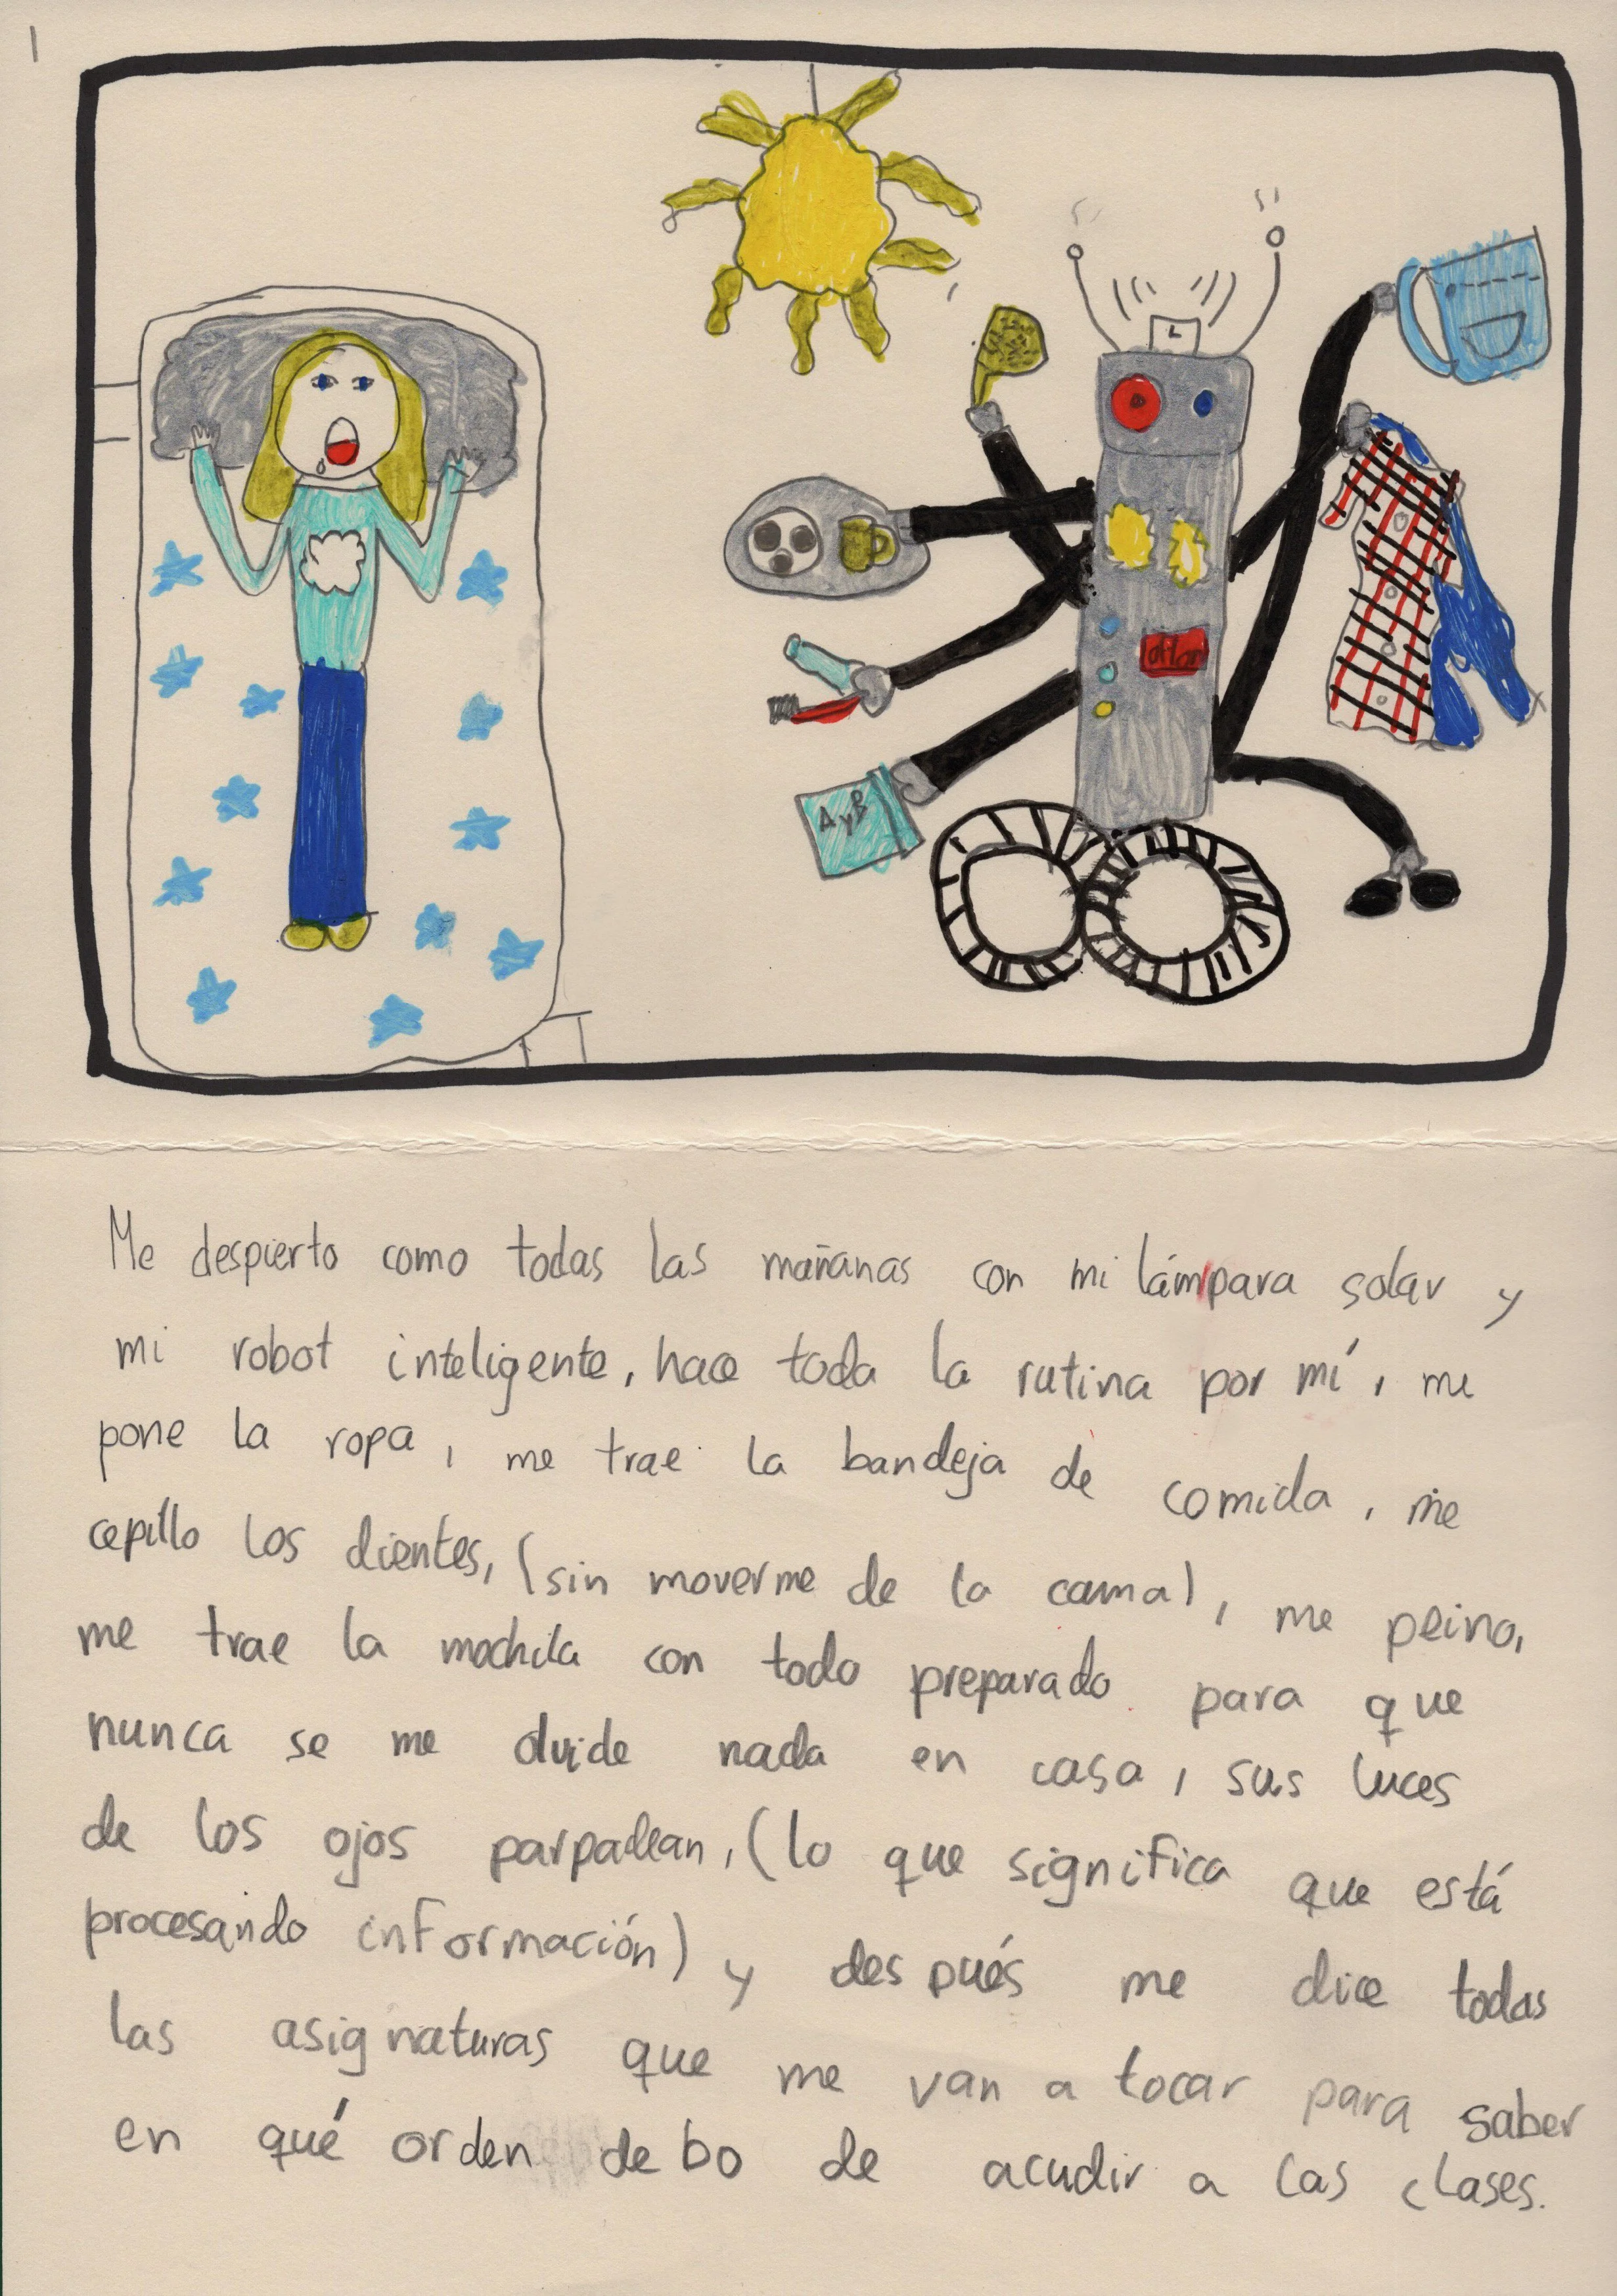 1
L
A y B
Me despierto como todas las mañanas con mi lámpara solar y
mi robot inteligente, hace toda la rutina por mí, me
pone la ropa, me trae la bandeja de comida, me
cepillo los dientes, (sin moverme de la cama), me peino,
me trae la mochila con todo preparado para que
nunca se me olvide nada en casa, sus luces
de los ojos parpadean, (lo que significa que está
procesando información) y después me dice todas
las asignaturas que me van a tocar para saber
en qué orden debo de acudir a las clases.